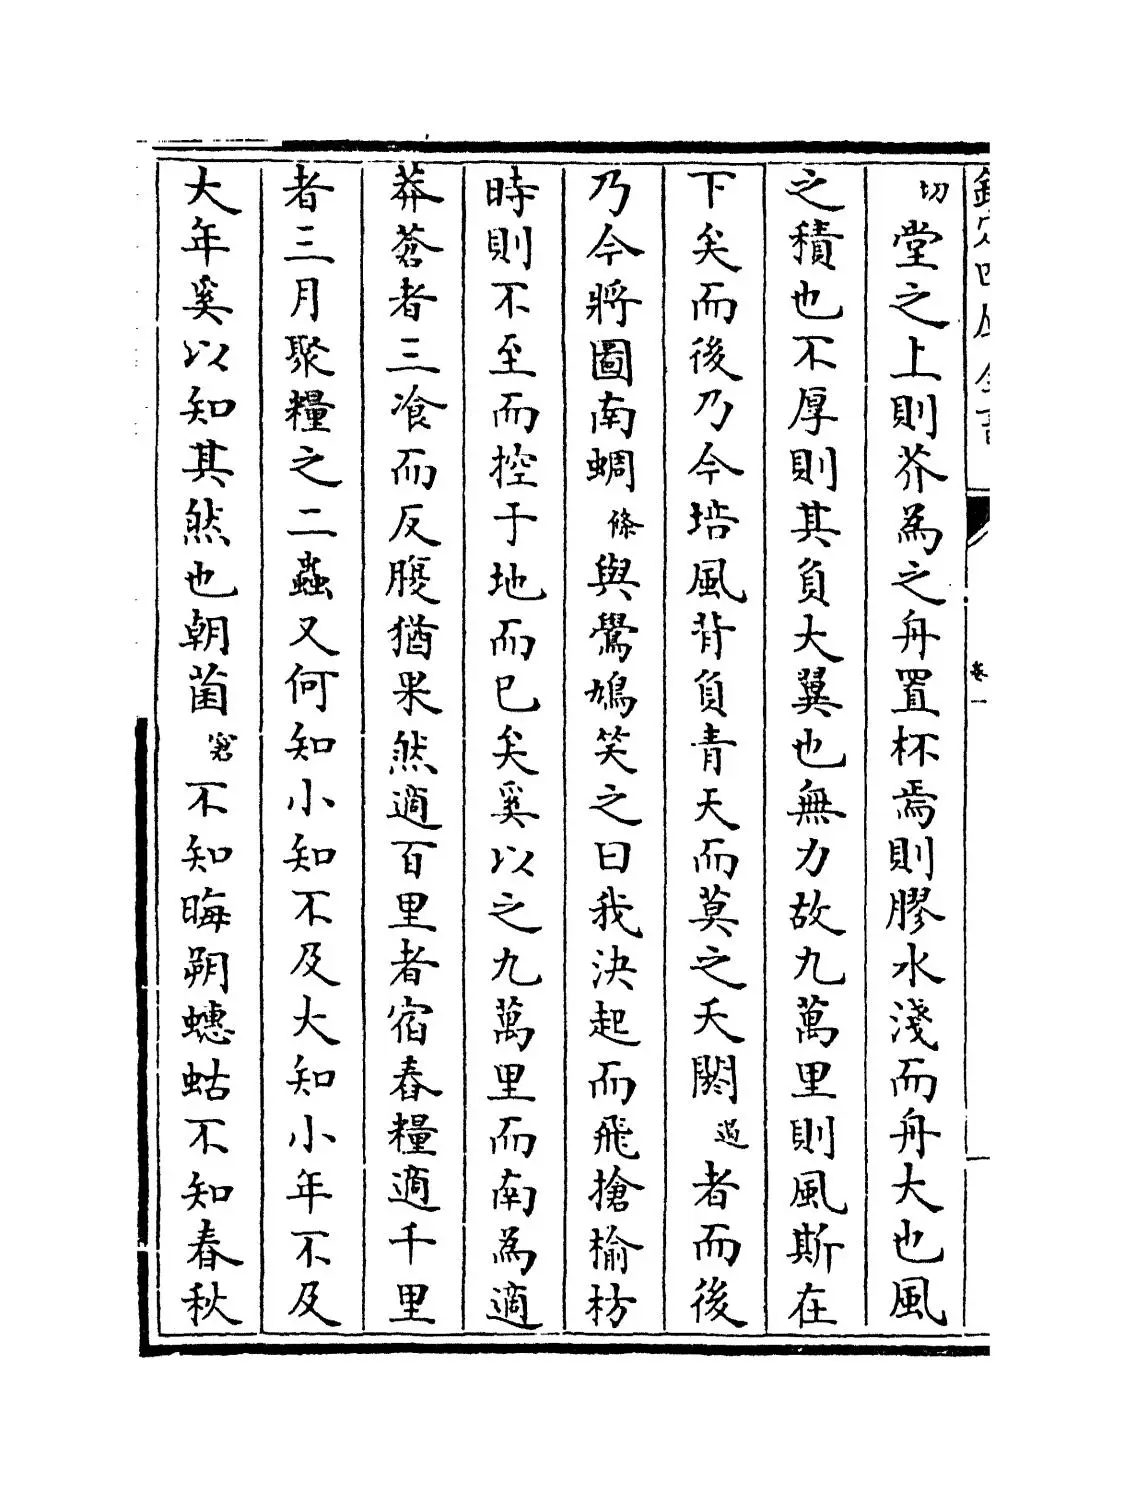 欽定四庫全書
卷一
一
切堂之上則芥為之舟置杯焉則膠水淺而舟大也風
之積也不厚則其負大翼也無力故九萬里則風斯在
下矣而後乃今培風背負青天而莫之夭閼遏者而後
乃今將圖南蜩條與鷽鳩笑之曰我決起而飛搶榆枋
時則不至而控于地而已矣奚以之九萬里而南為適
莽蒼者三飡而反腹猶果然適百里者宿舂糧適千里
者三月聚糧之二蟲又何知小知不及大知小年不及
大年奚以知其然也朝菌窘不知晦朔蟪蛄不知春秋